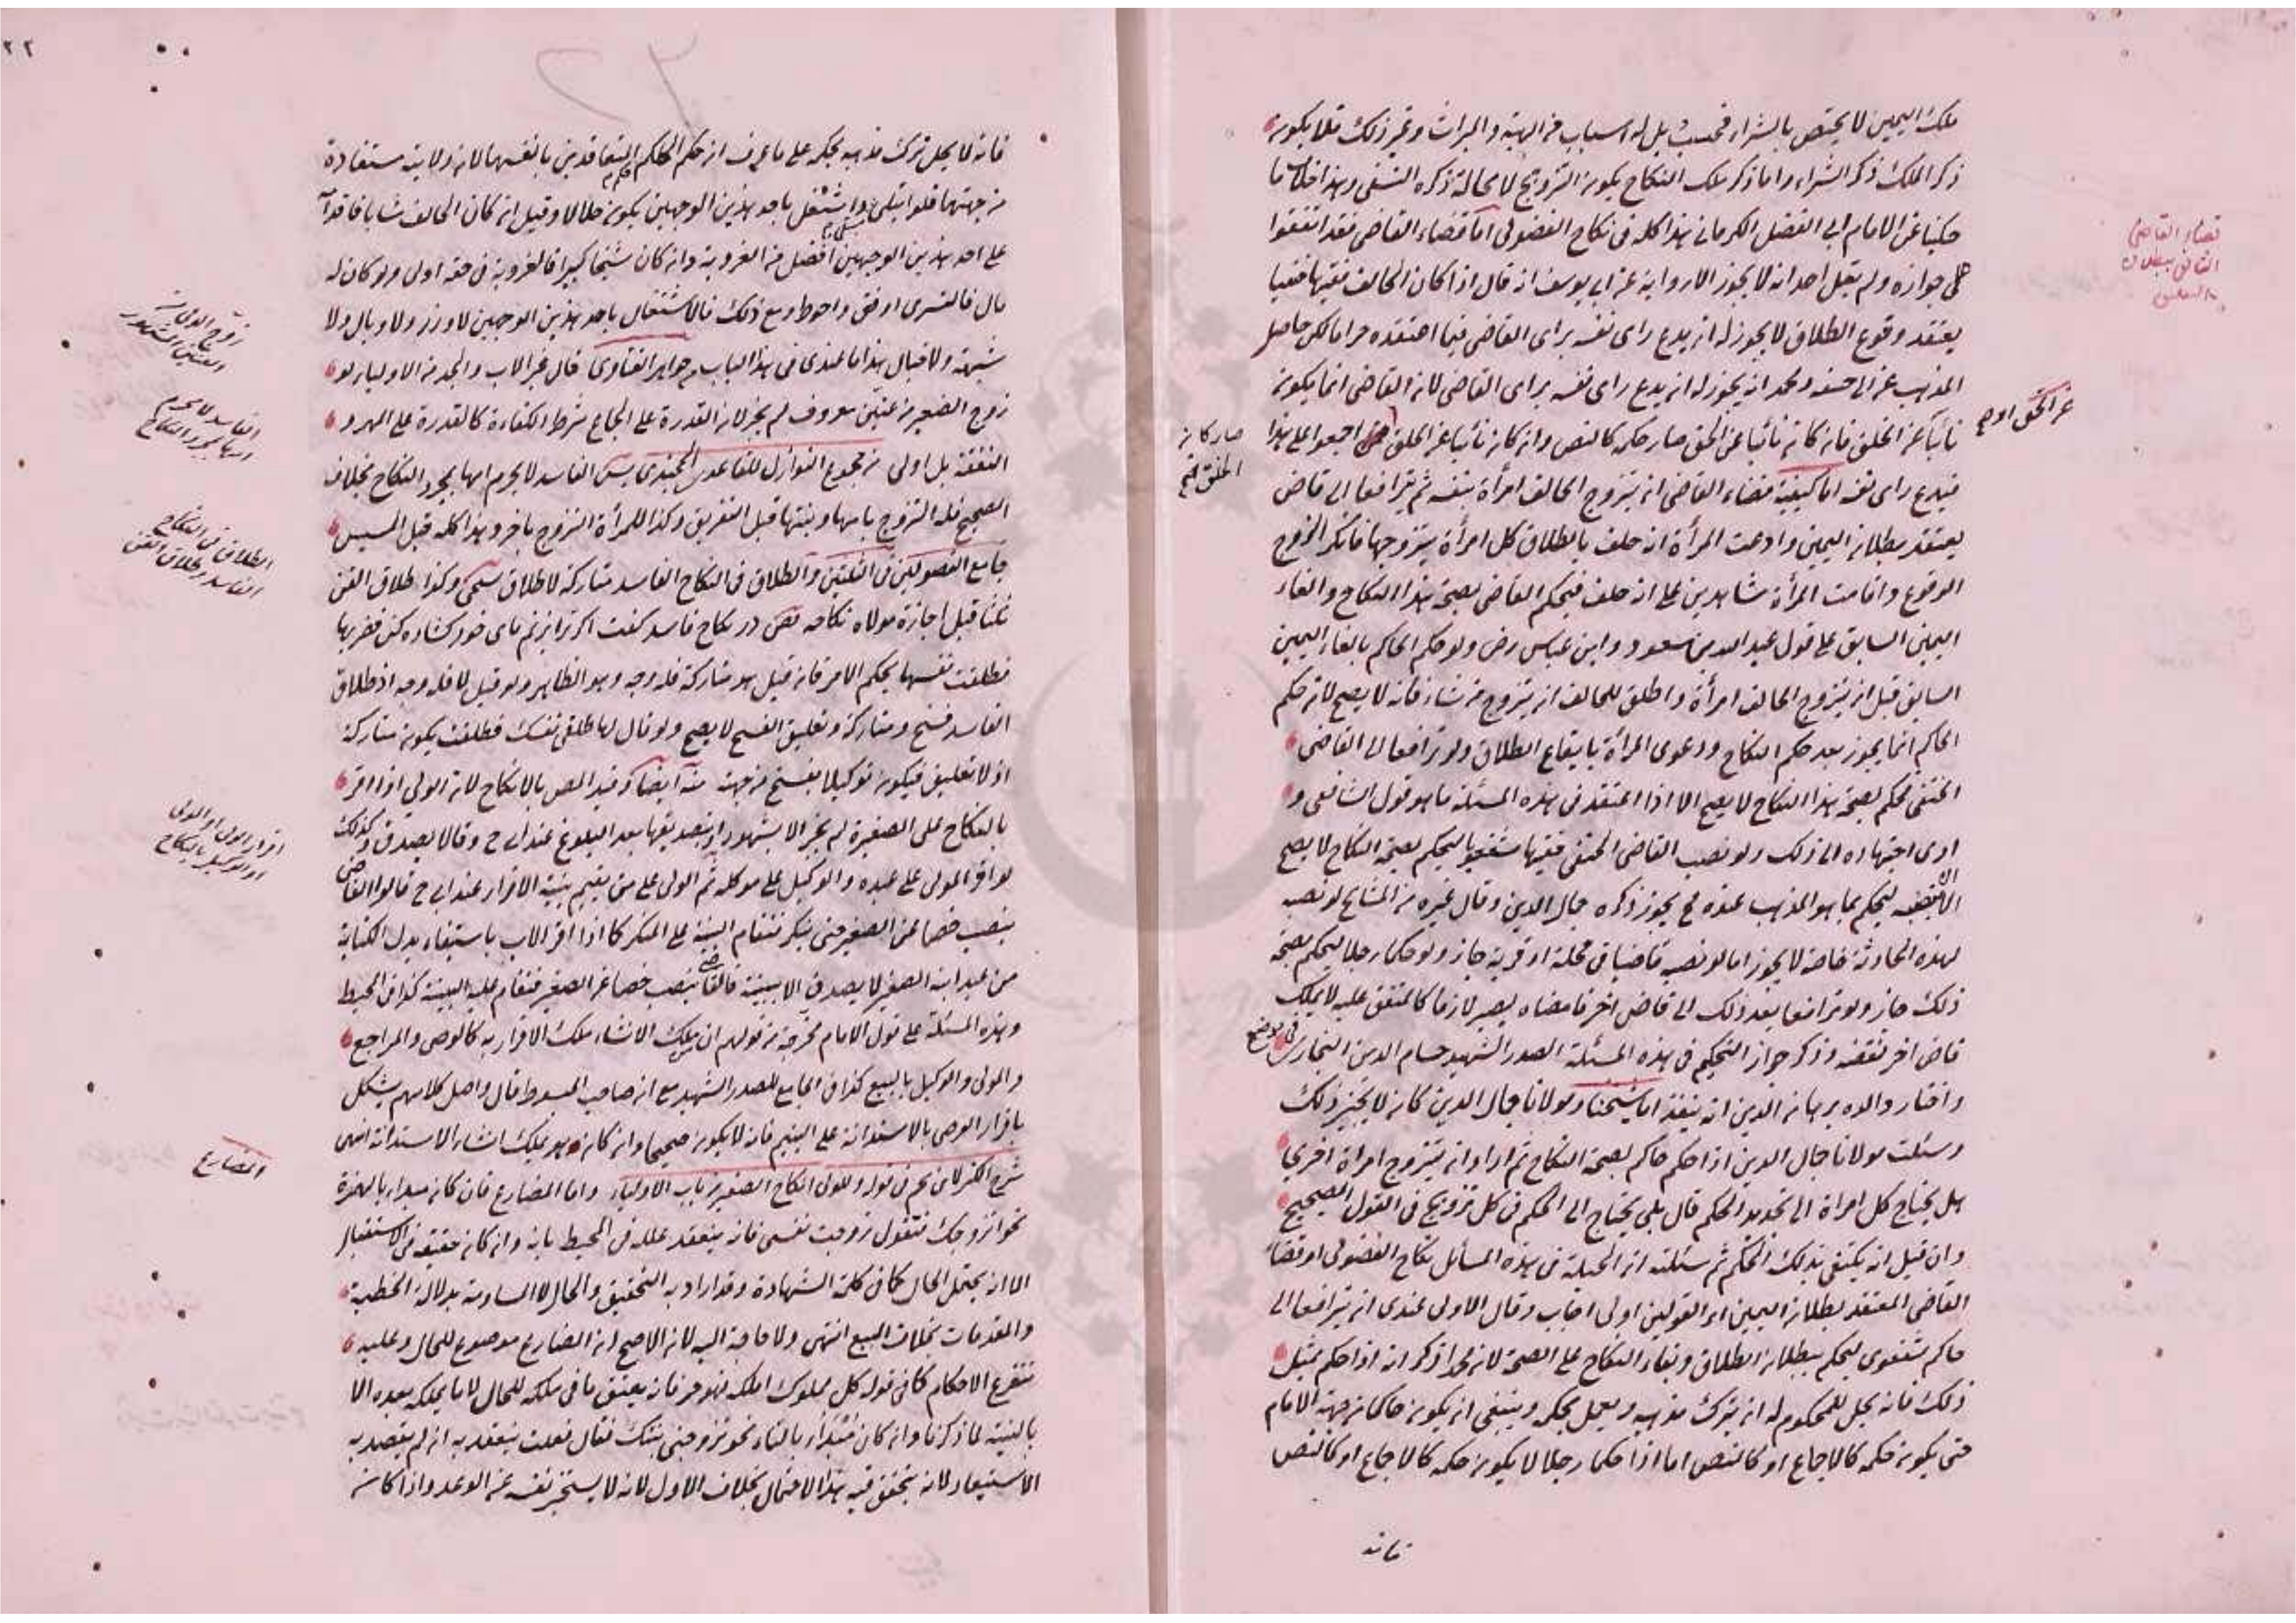 ملك اليمين لا يختص بالشراء فحسب بل له اسباب من الهبة والميراث وغير ذلك فلا يكون
ذكر الملك ذكر الشراء واما ذكر ملك النكاح يكون التزويج لا محالة ذكره النسفى وهذا خلاف ما
حكينا عن الامام ابى الفضل الكرمانى هذا كله فى نكاح الفضولى اما قضاء القاضى فقد اتفقوا
على جوازه ولم يقل احد انه لا يجوز الا رواية عن ابى يوسف انه قال اذا كان الحالف فقيها
يعتقد وقوع الطلاق لا يجوز له ان يدع راى نفسه براى القاضى فيما اعتقده حراما لكن حاصل
المذهب عن ابى حنيفة ومحمد انه يجوز له ان يدع راى نفسه براى القاضى لان القاضى انما يكون
نائبا عن الخلق فان كان نائبا عن الحق صار حكمه كالنص وان كان نائبا عن الخلق اجمعوا على هذا
فيدع راى نفسه اما كيفية قضاء القاضى ان يتزوج الحالف امرأة بنفسه ثم يترافعا الى قاض
يعتقد بطلان اليمين وادعت المرأة انه حلف بالطلاق كل امرأة يتزوجها فانكر الزوج
الوقوع واقامت المرأة شاهدين على انه حلف فيحكم القاضى بصحة هذا النكاح والغاء
اليمين السابق على قول عبد الله بن مسعود وابن عباس رض ولو حكم الحاكم بالغاء اليمين
السابق قبل ان يتزوج الحالف امرأة واطلق للحالف ان يتزوج من شاء فانه لا يصح لان حكم
الحاكم انما يجوز بعد حكم النكاح ودعوى المرأة بايقاع الطلاق ولو ترافعا الى القاضى
الحنفى فحكم بصحة هذا النكاح لا يصح الا اذا اعتقد فى هذه المسئلة ما هو قول الشافعى و
ادى اجتهاده الى ذلك ولو نصب القاضى الحنفى فقيها شفعويا ليحكم بصحة النكاح لا يصح
الا ان ليحكم بما هو المذهب عنده فح يجوز ذكره جمال الدين وقال غيره من المشايخ لو نصبه
لهذه الحادثة خاصة لا يجوز اما لو نصبه قاضيا فى محلة او قرية جاز ولو حكما رجلا ليحكم بصحة
ذلك جاز ولو ترافعا بعد ذلك الى قاض اخر فامضاه يصير لازما كالمتفق عليه لا يملك
قاض اخر نقضه وذكر جواز التحكيم فى هذه المسئلة الصدر الشهيد حسام الدين البخارى
واختار والده برهان الدين انه ينفذ اما شيخنا ومولانا جمال الدين كان لا يجيز ذلك
وسئلت مولانا جمال الدين اذا حكم حاكم بصحة النكاح ثم اراد ان يتزوج امراة اخرى
هل يحتاج كل امراة الى تجديد الحكم قال بلى يحتاج الى الحكم فى كل تزويج فى القول الصحيح
وان قيل انه يكتفى بذلك الحكم ثم سئلته ان الحيلة فى هذه المسائل نكاح الفضولى او قضاء
القاضى المعتقد بطلان اليمين اى القولين اولى اجاب وقال الاولى عندى ان يترافعا الى
حاكم شفعوى ليحكم ببطلان الطلاق وبقاء النكاح على الصحة لان محمدا ذكر انه اذا حكم بمثل
ذلك فانه يحل للمحكوم له ان يترك مذهبه ويعمل بحكمه وينبغى ان يكون حاكما من جهة الامام
حتى يكون حكمه كالاجماع او كالنص اما اذا حكما رجلا لا يكون حكمه كالاجماع او كالنص
فانه
قضاء القاضى
الثانى ببطلان
التعليق
عن الحق اوضح
صار كان
فانه لا يحل ترك مذهبه بحكمه على ما عرف ان حكم الحاكم المتعاقدين بانفسهما لان ولايته مستفادة
من جهتهما فلو ابتلى واشتغل باحد هذين الوجهين يكون حلالا وقيل ان كان الحالف شابا فاقدامه
على احد هذين الوجهين افضل من العزوبة وان كان شيخا كبيرا فالعزوبة فى حقه اولى ولو كان له
مال فالتسرى اوفق واحوط ومع ذلك فالاشتغال باحد هذين الوجهين لا وزر ولا وبال ولا
شبهة ولا خبال هذا ما عندى فى هذا الباب جواهر الفتاوى قال غير الاب والجد من الاولياء لو
زوج الصغير من عنين معروف لم يجز لان القدرة على الجماع شرط الكفاءة كالقدرة على المهر و
النفقة بل اولى من مجموع النوازل الفاسد لا يحرم امها بمجرد النكاح بخلاف
الصحيح فله التزوج بامها وبنتها قبل التفريق وكذا للمرأة التزوج باخر وهذا كله قبل المسيس
جامع الفصولين والطلاق فى النكاح الفاسد متاركة لا طلاق وكذا طلاق القن
ثلثا قبل اجازة مولاه نكاحه در نكاح فاسد كفت اكر ترا بزنم پاى خود كشاده كن فضربها
فطلقت نفسها بحكم الامر فان قيل هو متاركة فله وجه وهو الظاهر ولو قيل لا فله وجه اذ طلاق
الفاسد فسخ ومتاركة وتعليق الفسخ لا يصح ولو قال لها طلقى نفسك فطلقت يكون متاركة
اذ لا تعليق فيكون توكيلا بفسخ من جهته منه ايضا وقيد المص بالانكاح لان الولى اذا اقر
بالنكاح على الصغيرة لم يجز الا بشهود او بتصديقها بعد البلوغ عند ابى ح وقالا يصدق وكذلك
لو اقر المولى على عبده والوكيل على موكله ثم الولى على من يقيم بينة الاقرار عند ابى ح قالوا القاضى
ينصب خصما عن الصغير حتى ينكر فتقام البينة على المنكر كما اذا اقر الاب باستيفاء بدل الكتابة
من عبد ابنه الصغير لا يصدق الا ببينة فالقاضى ينصب خصما عن الصغير فتقام عليه البينة كذا فى المحيط
وهذه المسئلة على قول الامام مخرجة من قولهم ان من ملك الانشاء ملك الاقرار به كالوصى والمراجع
والمولى والوكيل بالبيع كذا فى الجامع للصدر الشهيد مع ان صاحب المبسوط قال واصل كلامهم يشكل
باقرار الوصى بالاستدانة على اليتيم فانه لا يكون صحيحا وان كان هو يملك انشاء الاستدانة انتهى
شرح الكنز لابن نجيم فى قوله وللولى انكاح الصغير من باب الاولياء واما المضارع فان كان مبدأ بالهمزة
نحو اتزوجك فتقول زوجت نفسى فانه ينعقد علله فى المحيط بانه وان كان حقيقة فى الاستقبال
الا انه يحتمل الحال كما فى كلمة الشهادة وقد اراد به التحقيق والحال لا المساومة بدلالة الخطبة
والمقدمات بخلاف البيع انتهى ولا حاجة اليه لان الاصح ان المضارع موضوع للحال وعليه
تتفرع الاحكام كما فى قوله كل مملوك املكه فهو حر فانه يعتق ما فى ملكه للحال لا ما يملكه بعده الا
بالنية لما ذكرنا وان كان مبتدأ بالتاء نحو تزوجنى بنتك فقال فعلت ينعقد به ان لم يقصد به
الاستيعاد لانه يتحقق فيه هذا الاحتمال بخلاف الاول لانه لا يستخبر نفسه عن الوعد واذا كان
زوج الولى من
العنين المشهور
الفاسد لا يحرم
امها بمجرد النكاح
الطلاق فى النكاح
الفاسد وطلاق القن
اقرار المولى او الولى
او الوكيل بالنكاح
والمضارع
٢٢